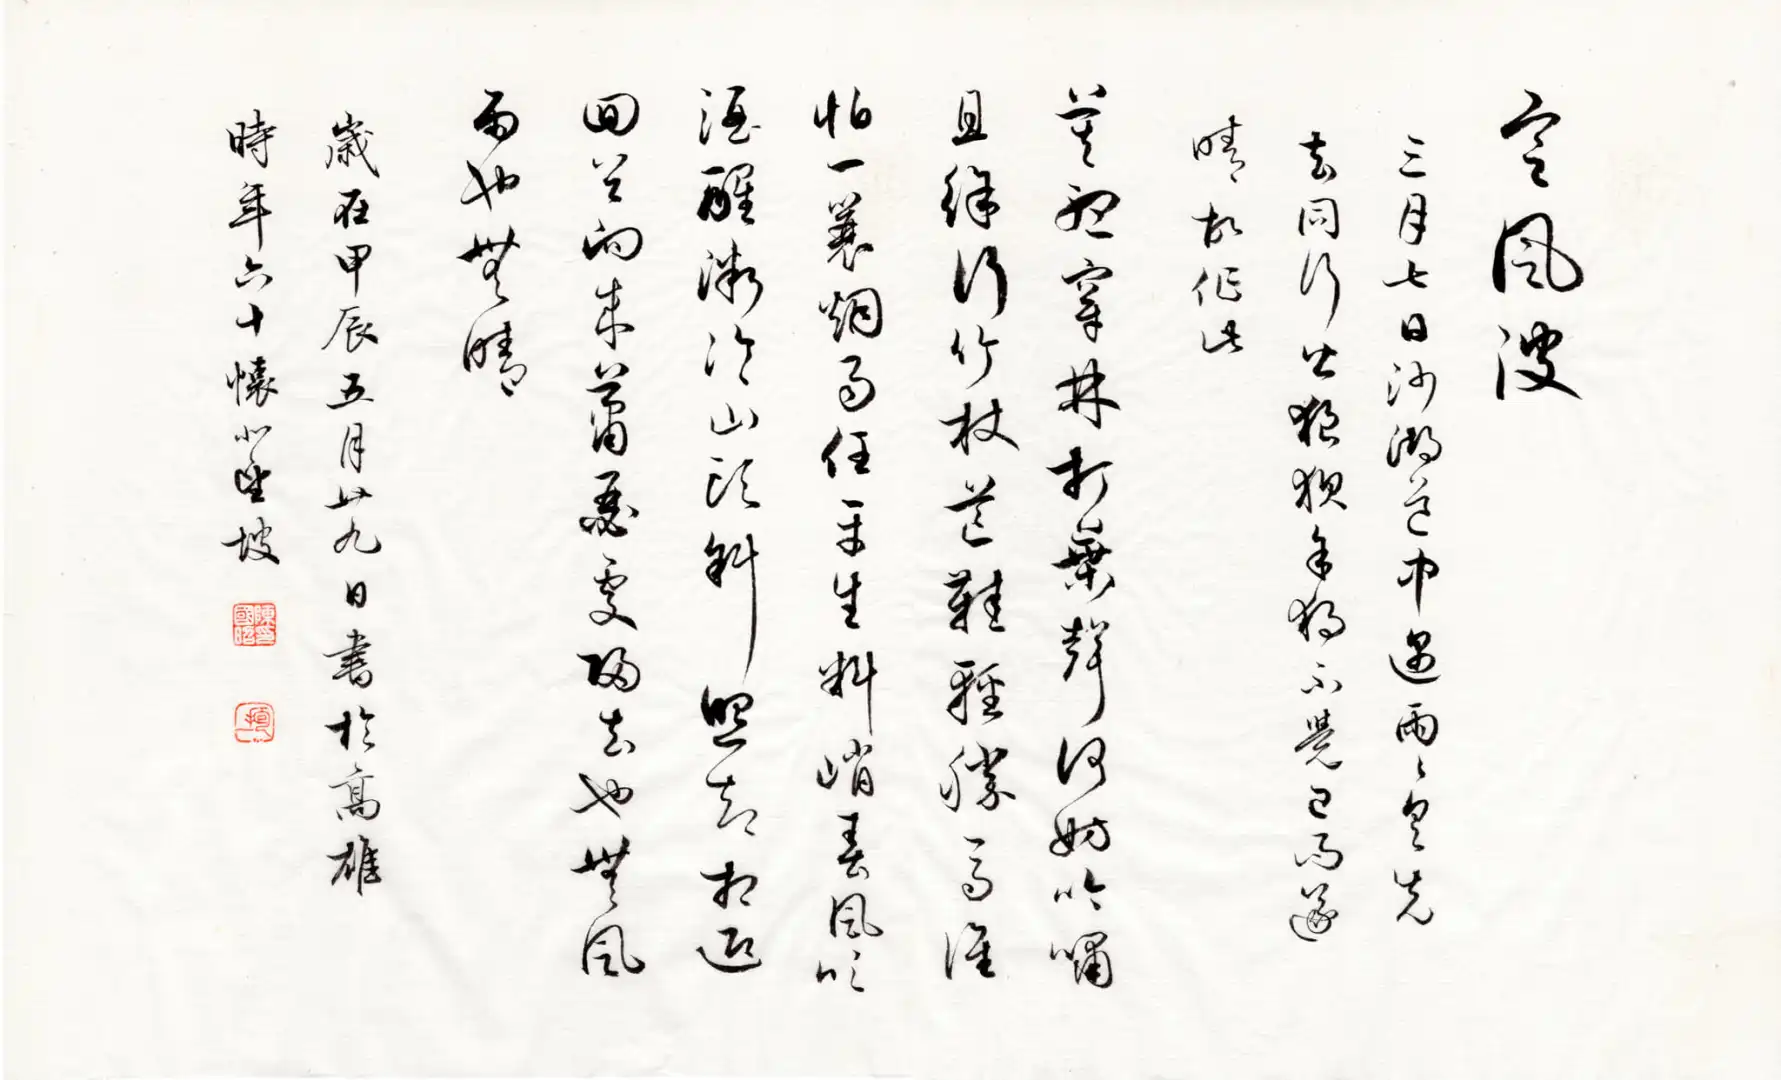 定風波
三月七日沙湖道中遇雨〻具先
去同行皆狼狽余獨不覺已而遂
晴故作此
莫聽穿林打葉聲何妨吟嘯
且徐行竹杖芒鞋輕勝馬誰
怕一蓑烟雨任平生料峭春風吹
酒醒微冷山頭斜照却相迎
回首向來蕭瑟處歸去也無風
雨也無晴
歲在甲辰五月廿九日書於高雄
時年六十懷坡
陳印國昭